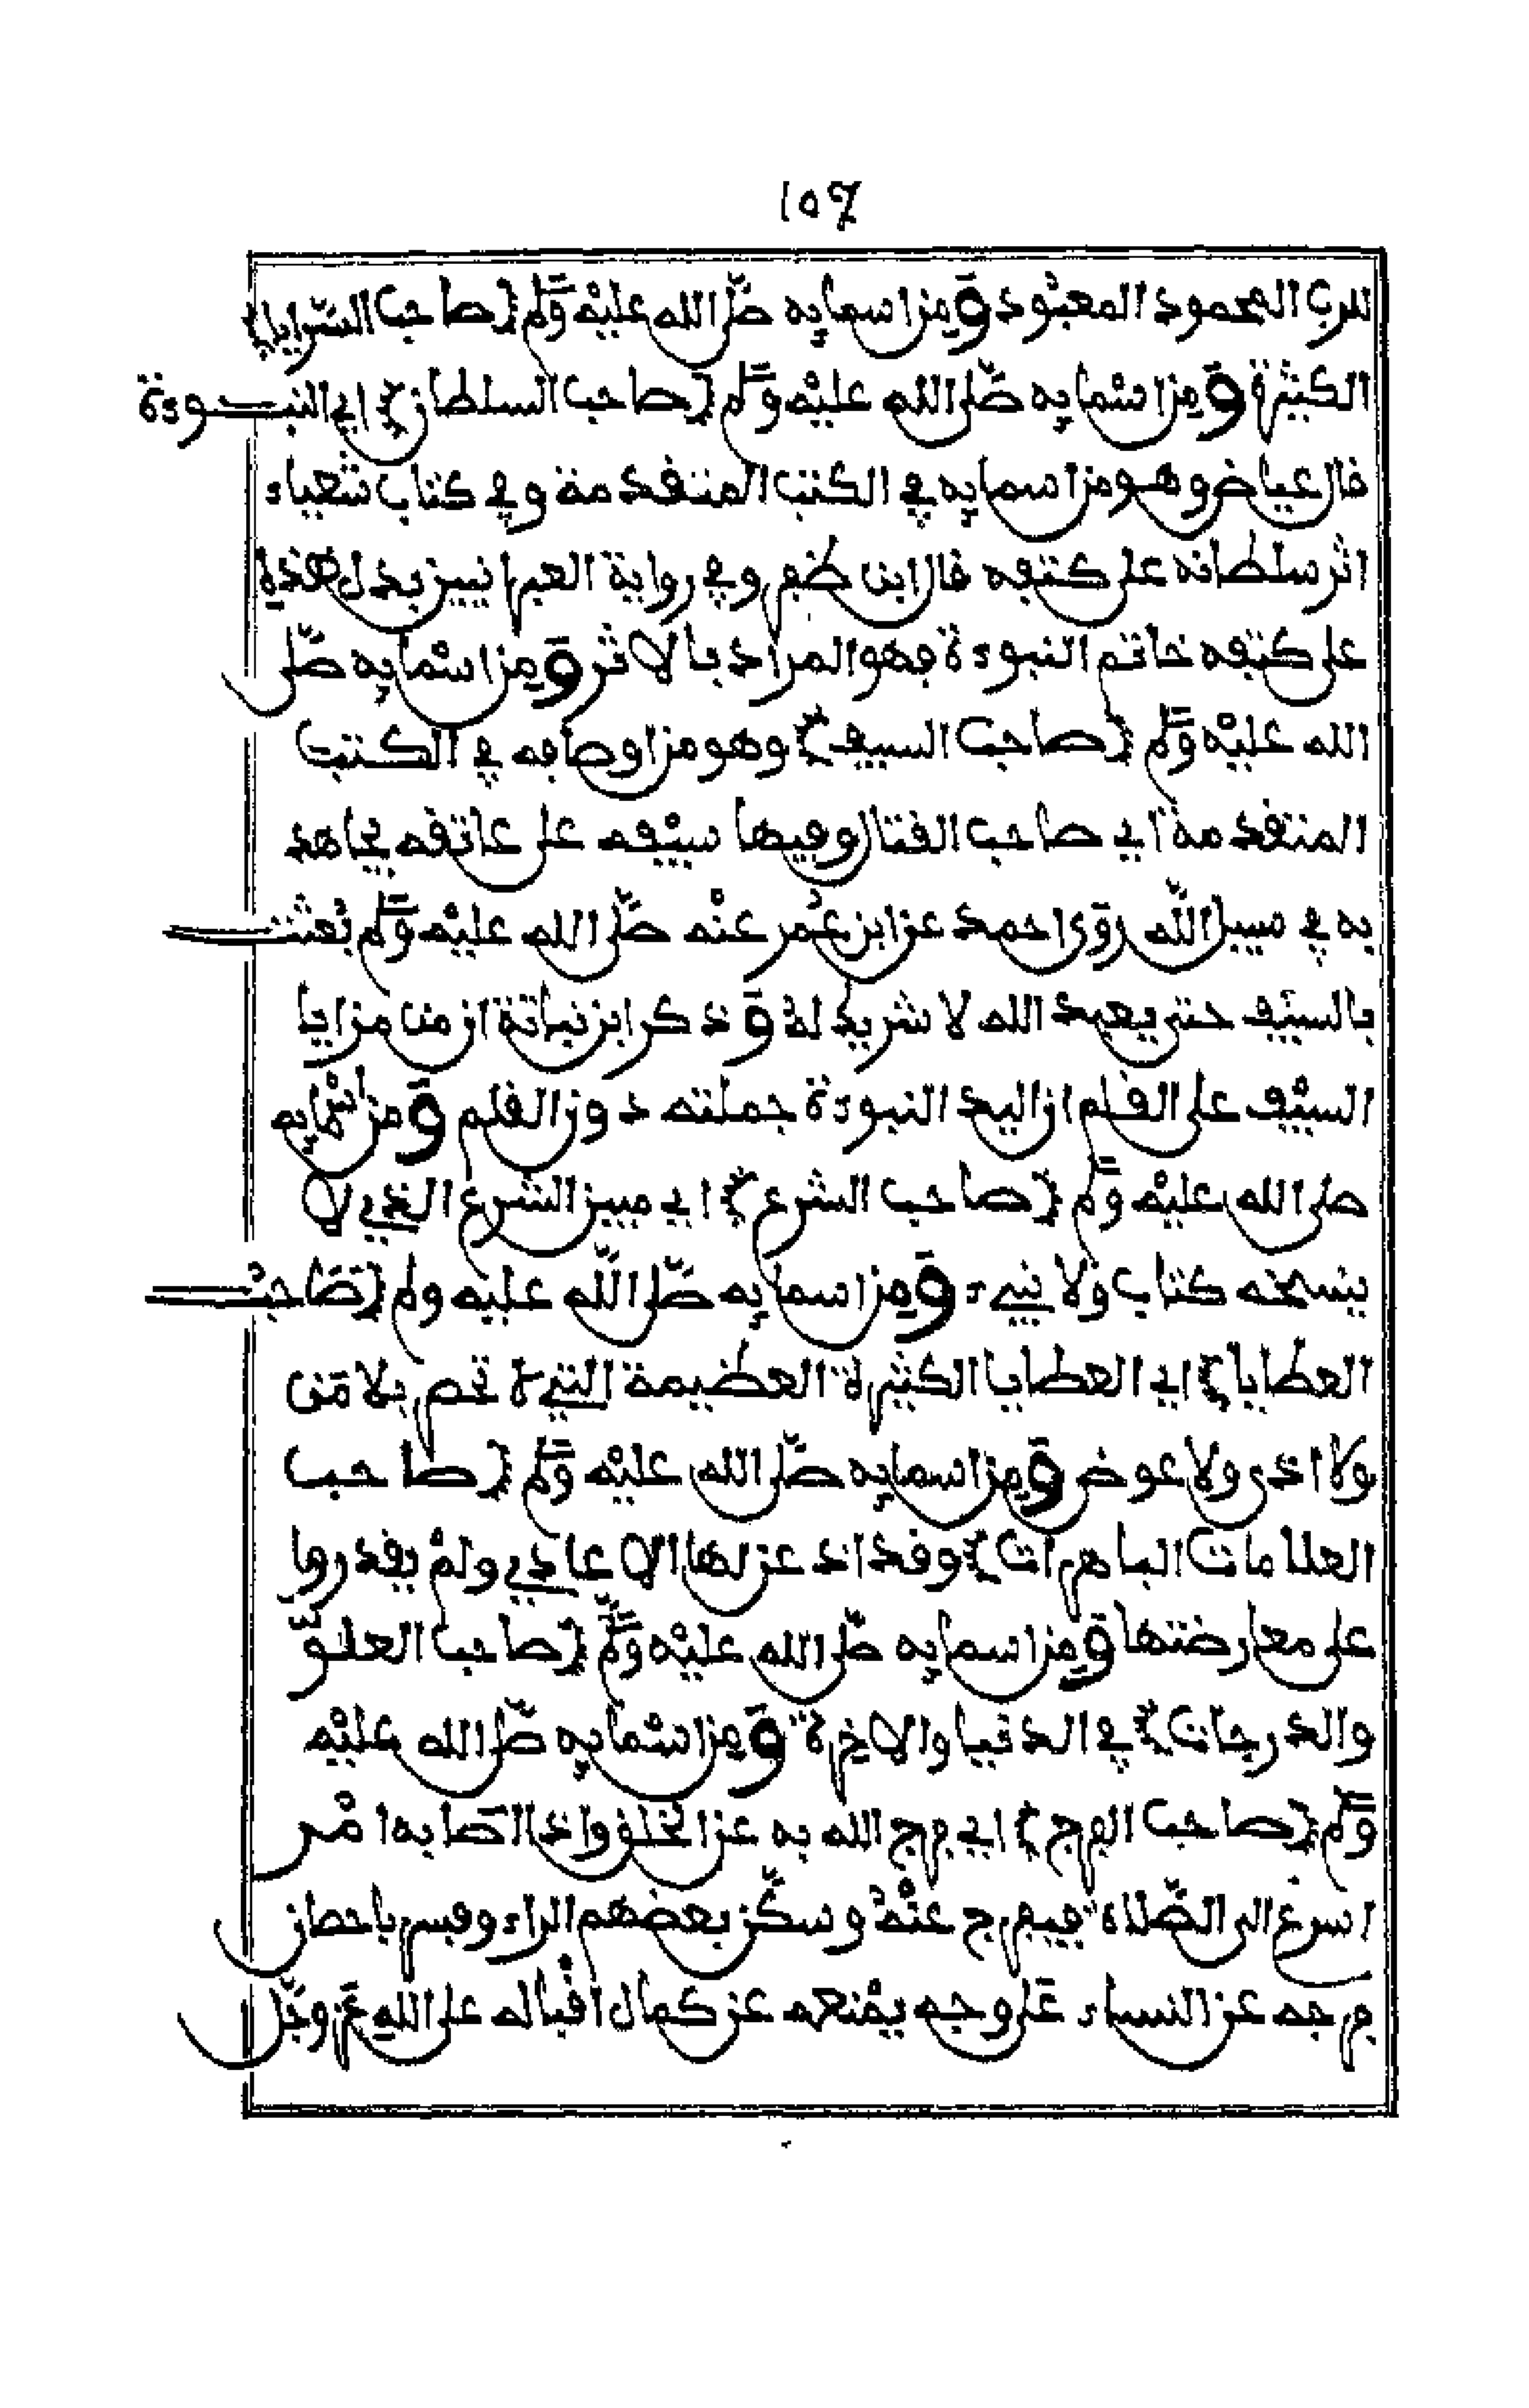 ١٥٦
للرب المحمود المعبود ومن اسمايه صلى الله عليه وسلم (صاحب السرايا)
الكثيرة ومن اسمايه صلى الله عليه وسلم (صاحب السلطان) اي النبوءة
قال عياض وهو من اسمايه في الكتب المتقدمة وفي كتاب شعياء
اثر سلطانه على كتفه قال ابن ظفر وفي رواية العبرانيين بدل هذه
على كتفه خاتم النبوءة فهو المراد بالاثر ومن اسمايه صلى
الله عليه وسلم (صاحب السيف) وهو من اوصافه في الكتب
المتقدمة اي صاحب القتال وفيها سيفه على عاتقه يجاهد
به في سبيل الله روى احمد عن ابن عمر عنه صلى الله عليه وسلم بعثت
بالسيف حتى يعبد الله لا شريك له وذكر ابن نباتة ان من مزايا
السيف على القلم ان اليد النبوءة حملته دون القلم ومن اسمايه
صلى الله عليه وسلم (صاحب الشرع) اي مبين الشرع الذي لا
ينسخه كتاب ولا نبيء ومن اسمايه صلى الله عليه وسلم (صاحب
العطايا) اي العطايا الكثيرة العظيمة التي لا تحصر بلا من
ولا اذى ولا عوض ومن اسمايه صلى الله عليه وسلم (صاحب
العلامات الباهرات) وقد اذعن لها الاعادي ولم يقدروا
على معارضتها ومن اسمايه صلى الله عليه وسلم (صاحب العلو
والدرجات) في الدنيا والاخرة ومن اسمايه صلى الله عليه
وسلم (صاحب الفرج) اي فرج الله به عن الخلق واذا اصابه امر
اسرع الى الصلاة فيفرج عنه وسكن بعضهم الراء وفسر باحصان
فرجه عن النساء على وجه يمنعه عن كمال اقباله على الله عز وجل